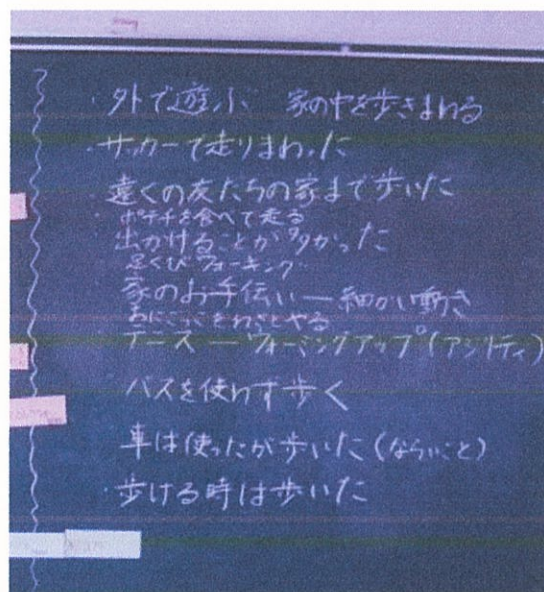 ・外で遊ぶ 家の中を歩きまわる
・サッカーで走りまわった
・遠くの友だちの家まで歩いた
・ポテチを食べて走る
出かけることが多かった
足くびウォーキング
家のお手伝い―細かい動き
をわざとやる
テニス―ウォーミングアップ(アジリティ)
バスを使わず歩く
車は使ったが歩いた(ならいごと)
・歩ける時は歩いた